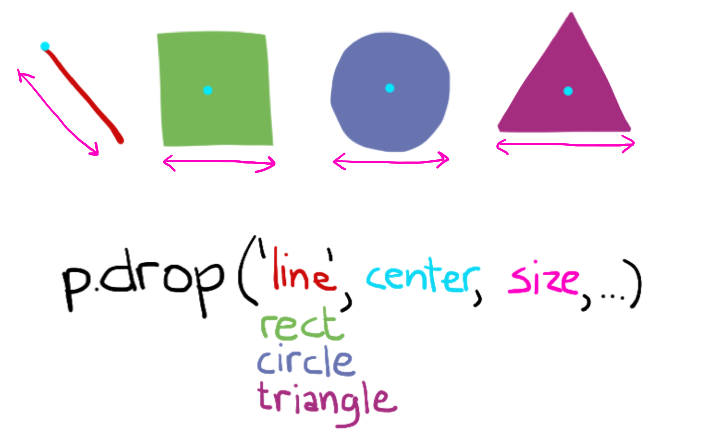 p.drop('line', center, size, ...)
rect
circle
triangle